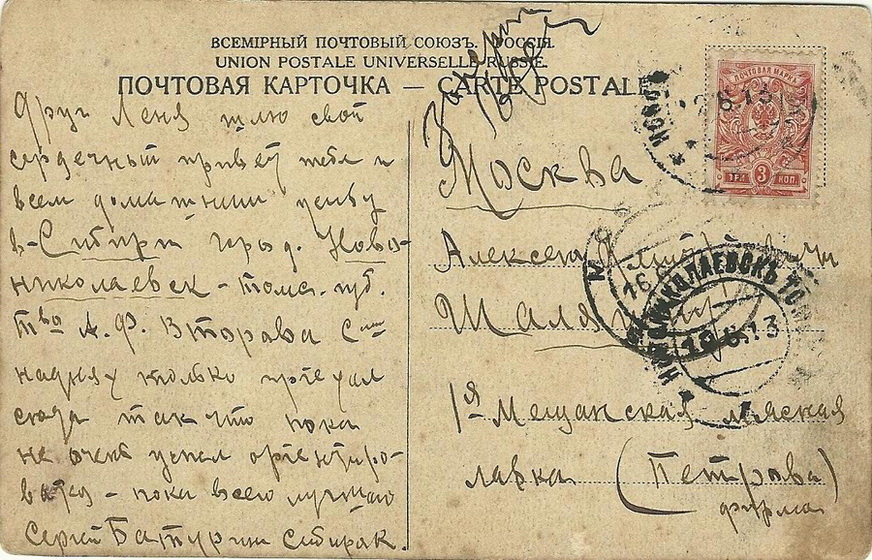 ВСЕМІРНЫЙ ПОЧТОВЫЙ СОЮЗЪ. РОССІЯ.
UNION POSTALE UNIVERSELLE RUSSIE.
ПОЧТОВАЯ КАРТОЧКА — CARTE POSTALE
Друг Леня шлю свой
сердечный привет тебе и
всем домашним живу
в-Сибири город. Ново-
николаевск - Томс. губ.
Т-во А. Ф. Второва С-ми
наднях только приехал
сюда так что пока
не очень успел ориентиро-
ваться - пока всего лучшаго
Сергей Батурин сибиряк.
ПОЧТОВАЯ МАРКА
ТРИ 3 КОП.
Москва
Алексею
Шаляпину
1я Мещанская мясная
лавка (Петрова)
фирма
НИКОЛАЕВСКЪ ТОМ
6.13